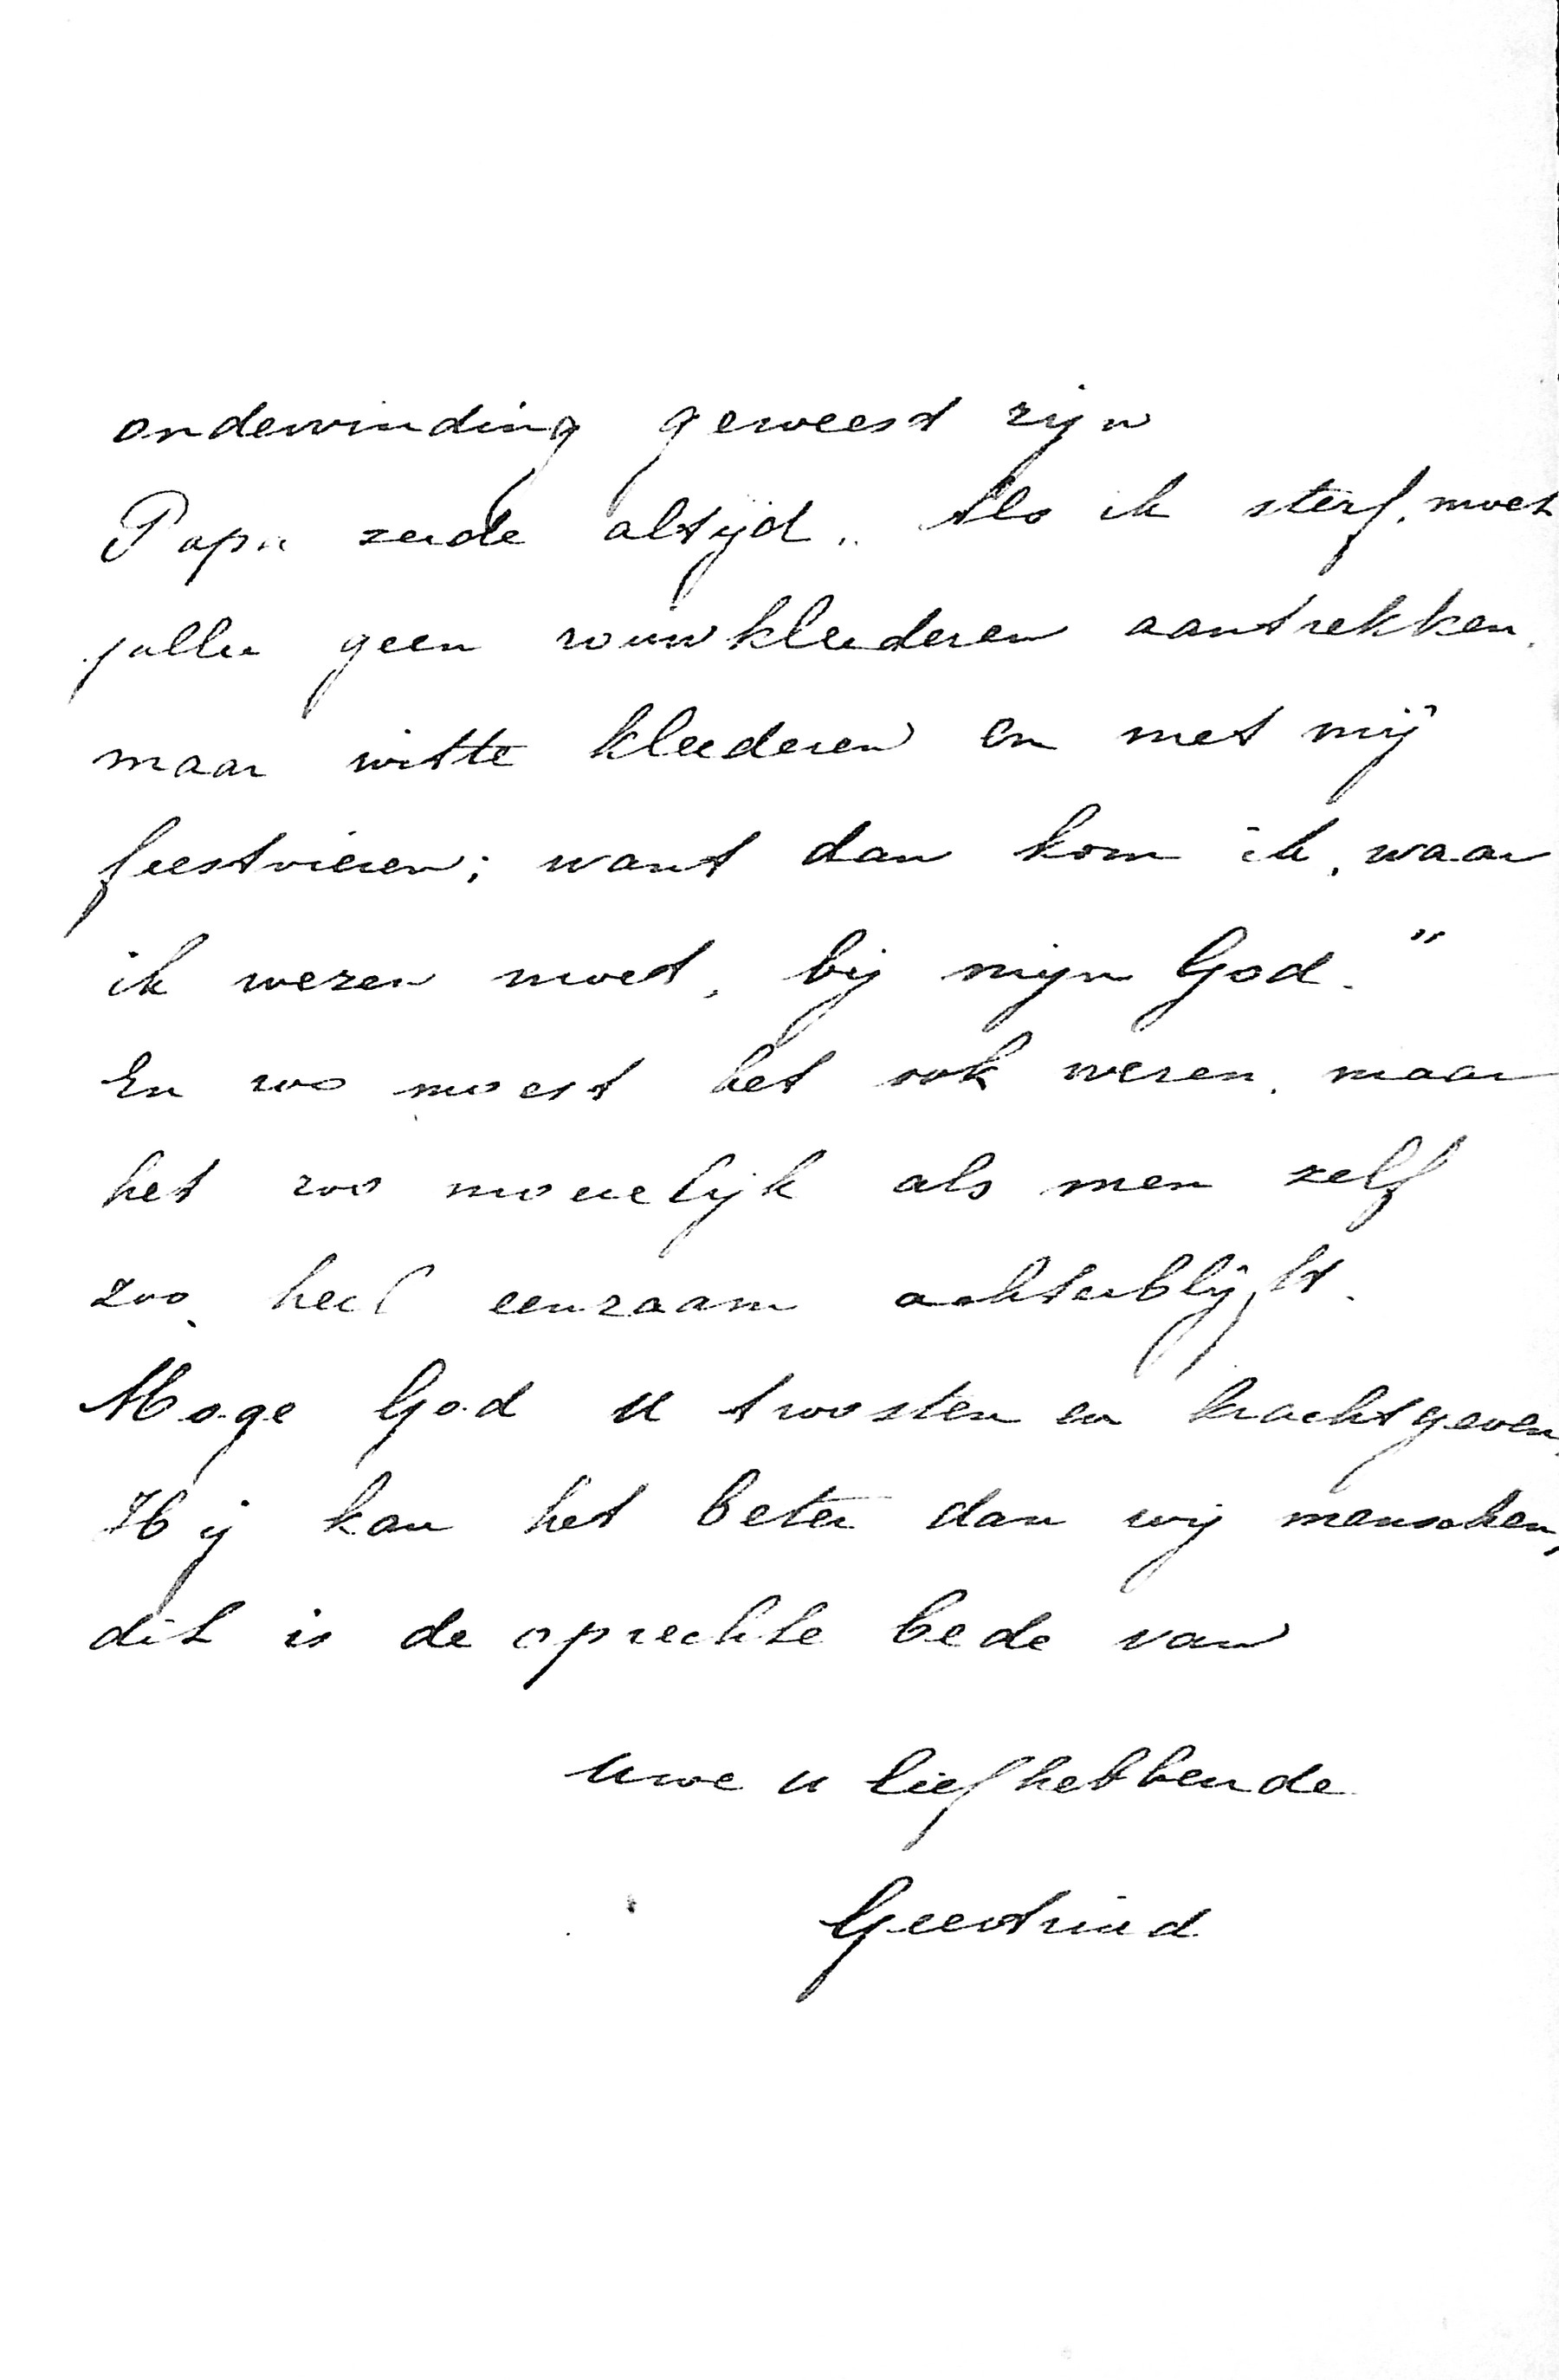 ondervinding geweest zijn
Papa zeide altijd „Als ik sterf, moet
jullie geen rouwkleederen aantrekken,
maar witte kleederen en met mij
feestvieren; want dan kom ik, waar
ik wezen moet, bij mijn God."
En zoo moest het ook wezen, maar
het zoo moeielijk als men zelf
zoo heel eenzaam achterblijft.
Moge God U troosten en kracht geven,
Hij kan het beter dan wij menschen,
dit is de oprechte bede van
Uwe u liefhebbende
Geertruid